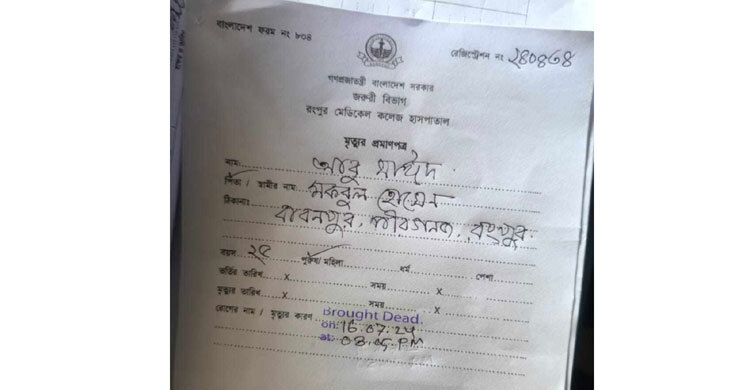 বাংলাদেশ ফরম নং ৮০৪
রেজিস্ট্রেশন নং ২৪০৪৩৪
গণপ্রজাতন্ত্রী বাংলাদেশ সরকার
জরুরী বিভাগ
রংপুর মেডিকেল কলেজ হাসপাতাল
মৃত্যুর প্রমাণপত্র
নাম: আবু সাঈদ
পিতা / স্বামীর নাম মকবুল হোসেন
ঠিকানাঃ বাবনপুর, পীরগনজ, রংপুর
বয়স ২৫ পুরুষ/মহিলা ধর্ম পেশা
ভর্তির তারিখ x সময় x
মৃত্যুর তারিখ x সময় x
রোগের নাম / মৃত্যুর কারণ Brought Dead.
on: 16.07.24
at: 03.05 PM